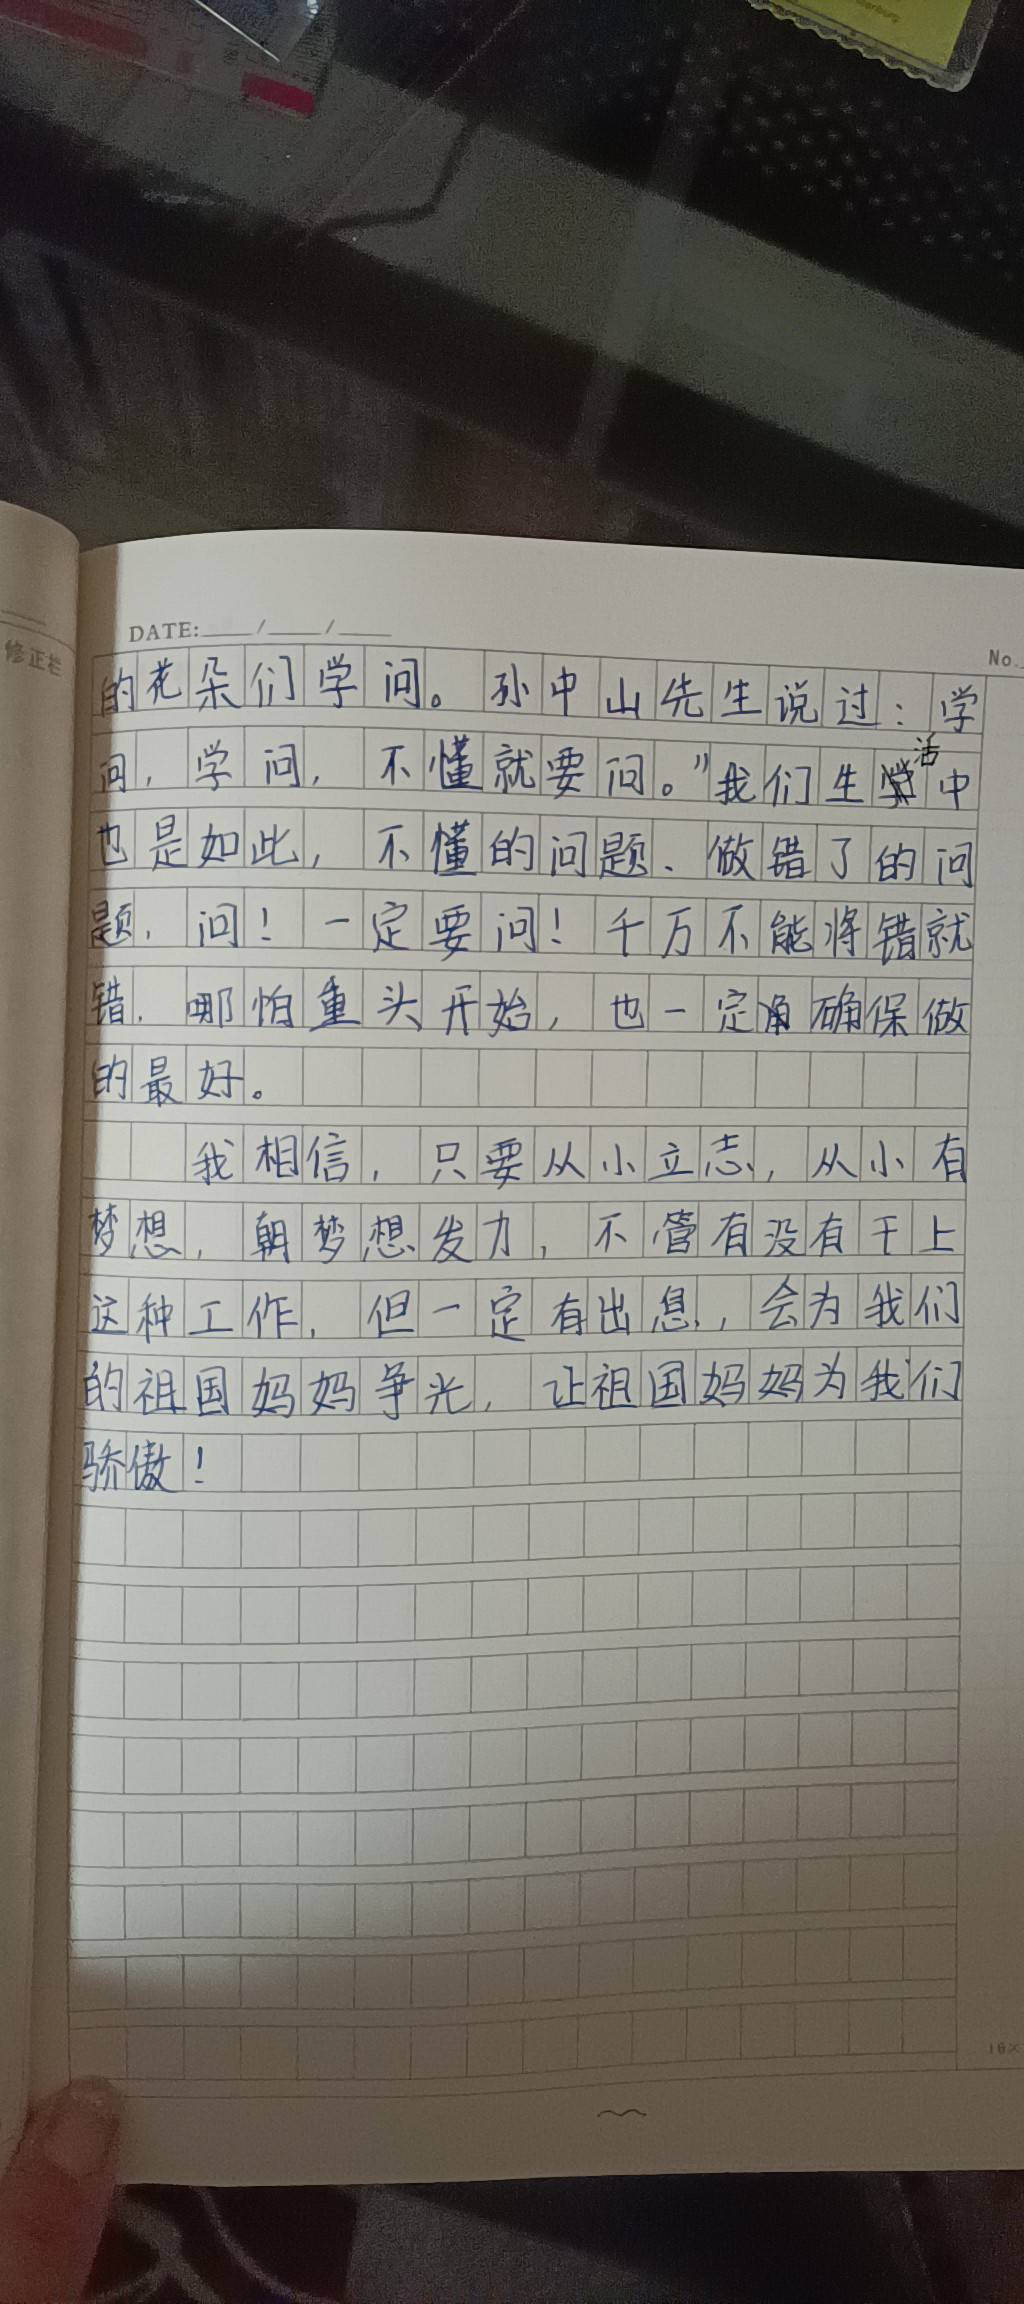 修正栏
DATE:
No.
的花朵们学问。孙中山先生说过：学
问，学问，不懂就要问。”我们生活中
也是如此，不懂的问题、做错了的问
题，问！一定要问！千万不能将错就
错，哪怕重头开始，也一定确保做
的最好。
我相信，只要从小立志，从小有
梦想，朝梦想发力，不管有没有干上
这种工作，但一定有出息，会为我们
的祖国妈妈争光，让祖国妈妈为我们
骄傲！